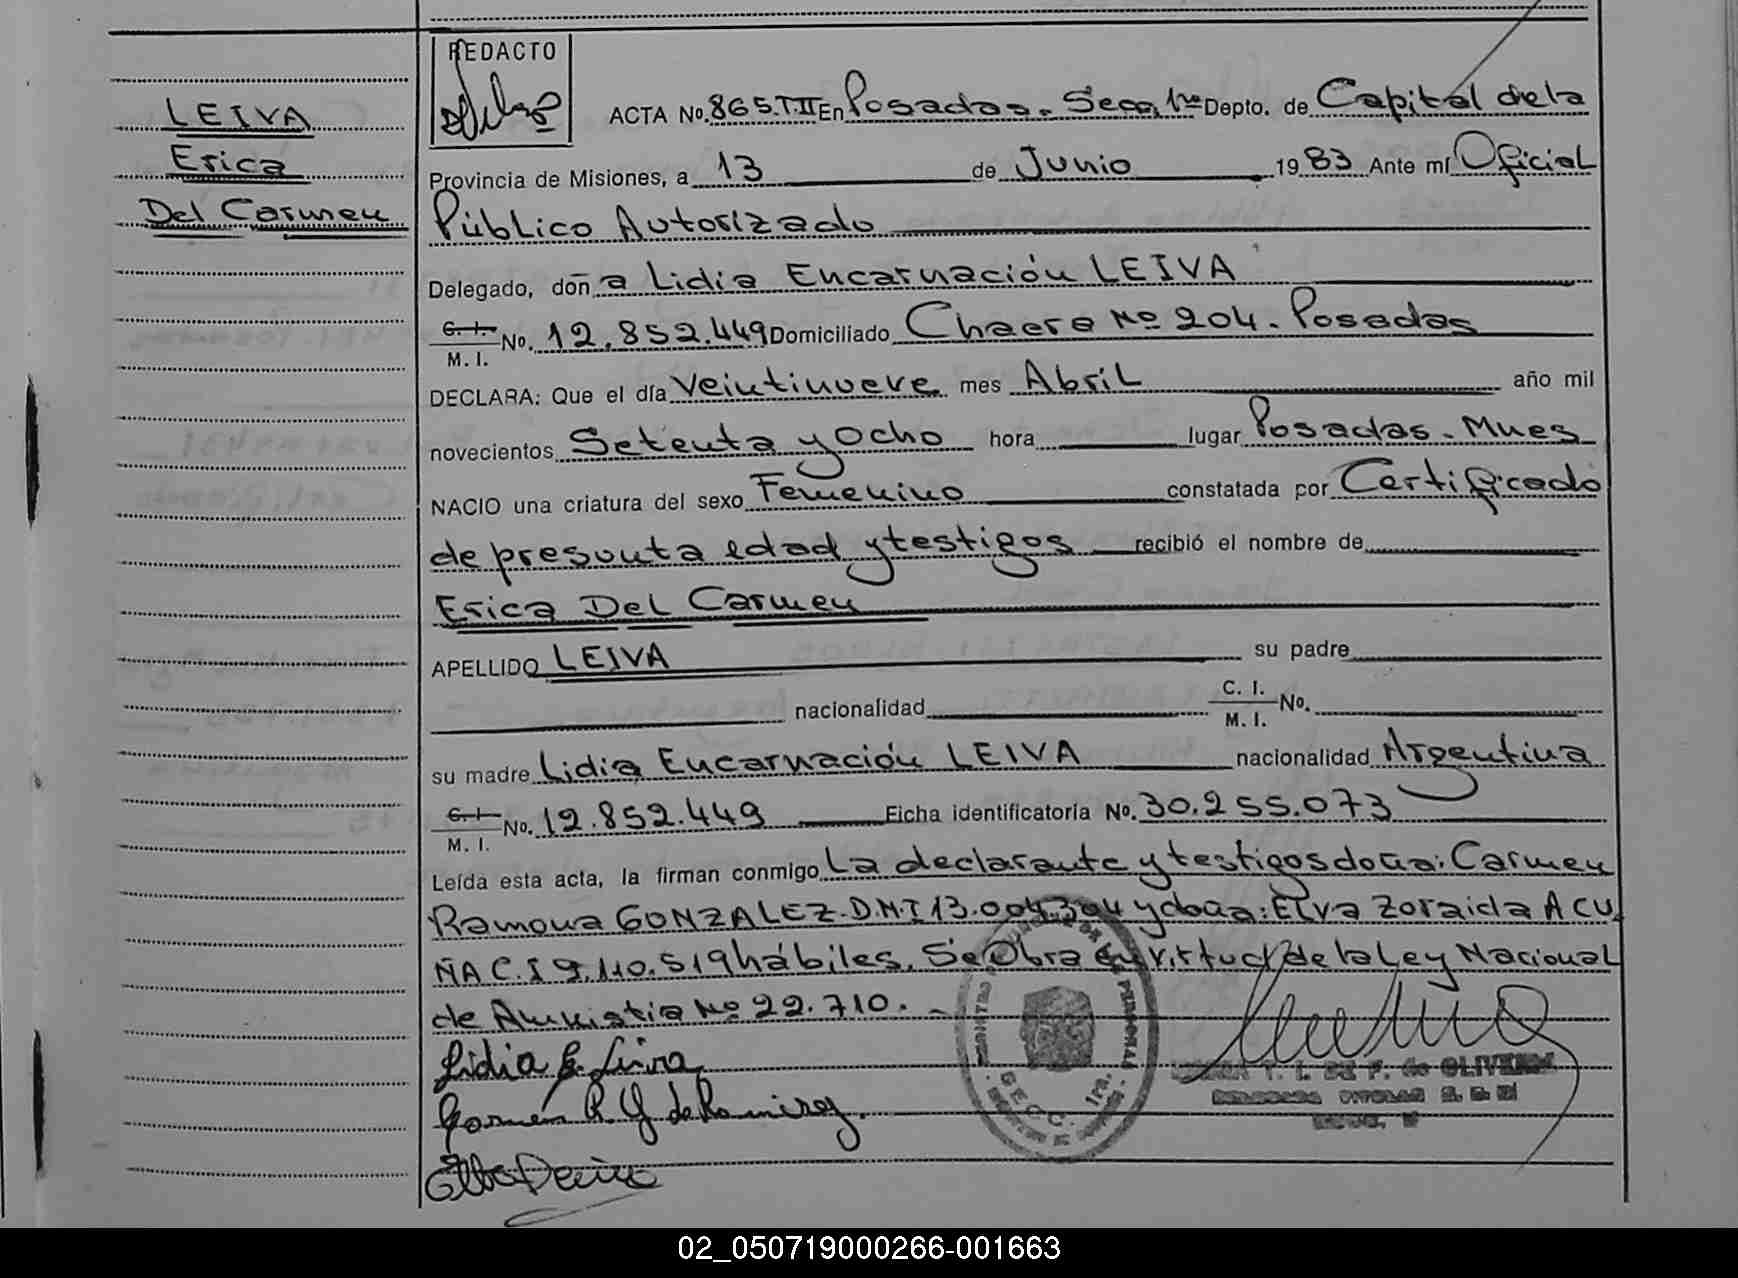 REDACTO
LEIVA
Erica
Del Carmen
ACTA No. 865.TII En Posadas. Secc. 1ra Depto. de Capital de la
Provincia de Misiones, a 13 de Junio 1983 Ante mí Oficial
Público Autorizado
Delegado, don a Lidia Encarnación LEIVA
C. I. M. I. No. 12.852.449 Domiciliado Chacra Nº 204. Posadas
DECLARA: Que el día Veintinueve mes Abril año mil
novecientos Setenta y Ocho hora lugar Posadas. Mnes
NACIO una criatura del sexo Femenino constatada por Certificado
de presunta edad y testigos recibió el nombre de
Erica Del Carmen
APELLIDO LEIVA su padre
nacionalidad C. I. M. I. No.
su madre Lidia Encarnación LEIVA nacionalidad Argentina
C. I. M. I. No. 12.852.449 Ficha identificatoria No. 30.255.073
Leída esta acta, la firman conmigo La declarante y testigos doña: Carmen
Ramona GONZALEZ. D.N.I 13.004.304 y doña: Elva Zoraida ACU
ÑA C.I 9.110.519 hábiles. Se Obra en virtud de la Ley Nacional
de Amnistia Nº 22.710.
Lidia E. Leiva
Carmen R. G de Ramirez
SECC. 1ra.
T. I. DE F. de OLIVEIRA
02_050719000266-001663